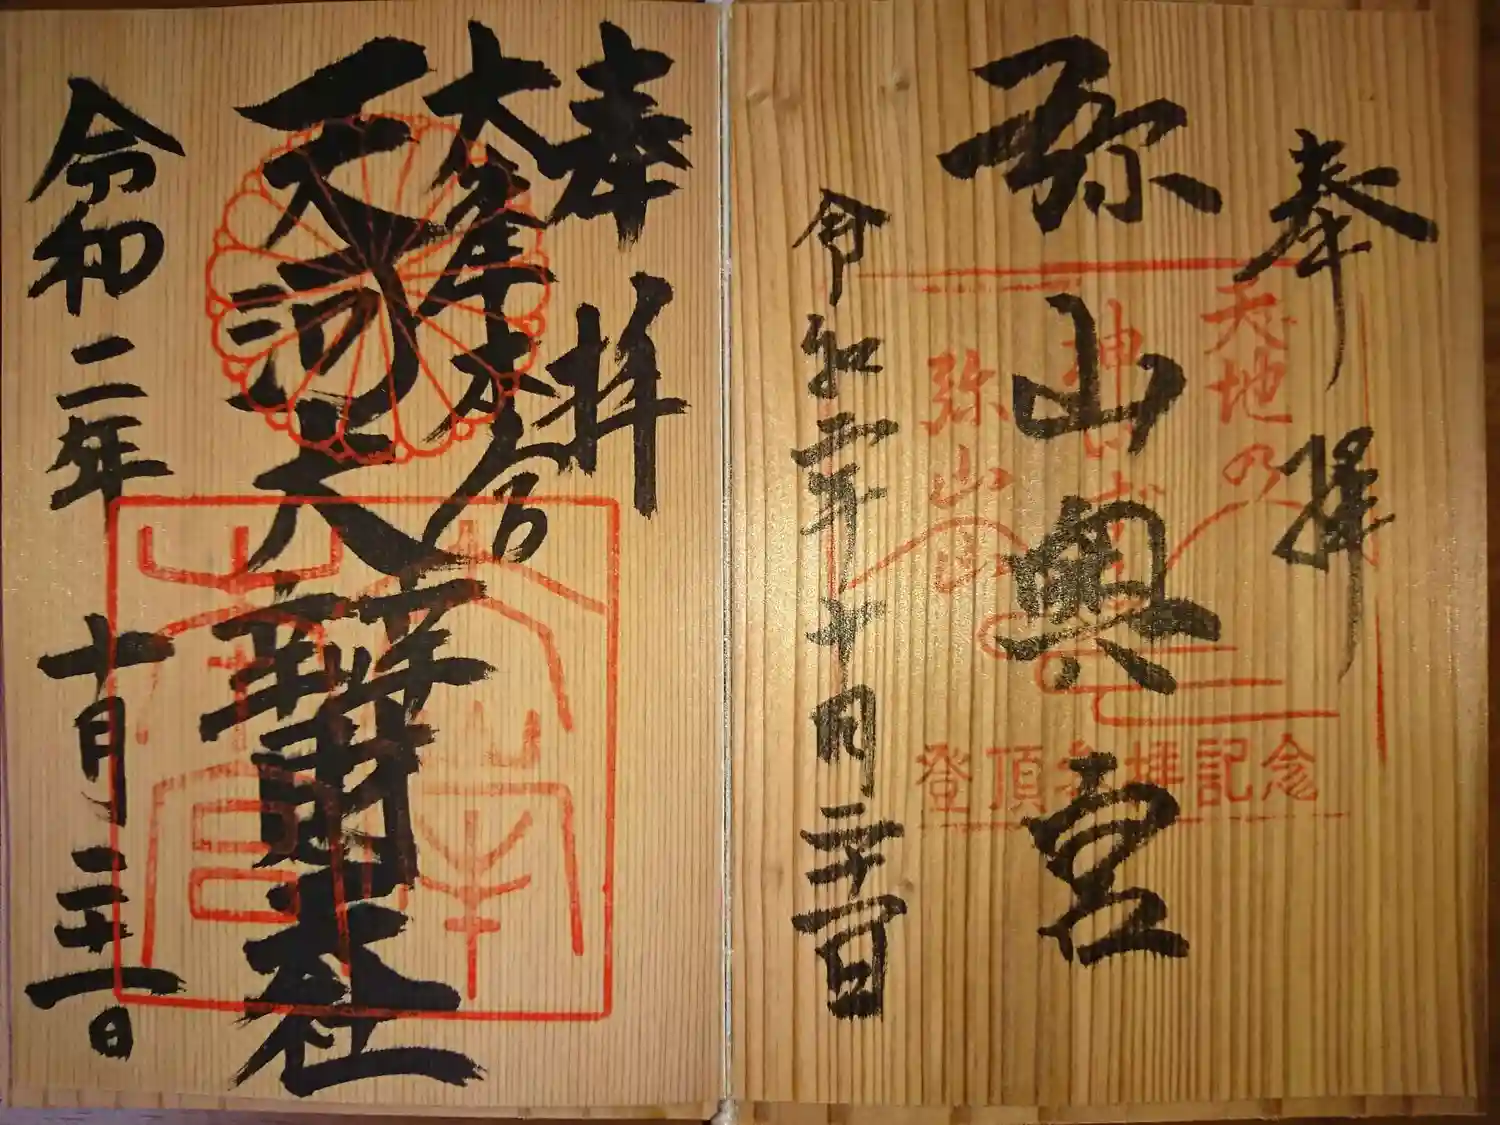 奉拝
天地の
弥山奥宮
弥山
登頂参拝記念
令和二年十月二十一日
奉拝
大峯本宮
天河大辨財天社
令和二年十月二十一日